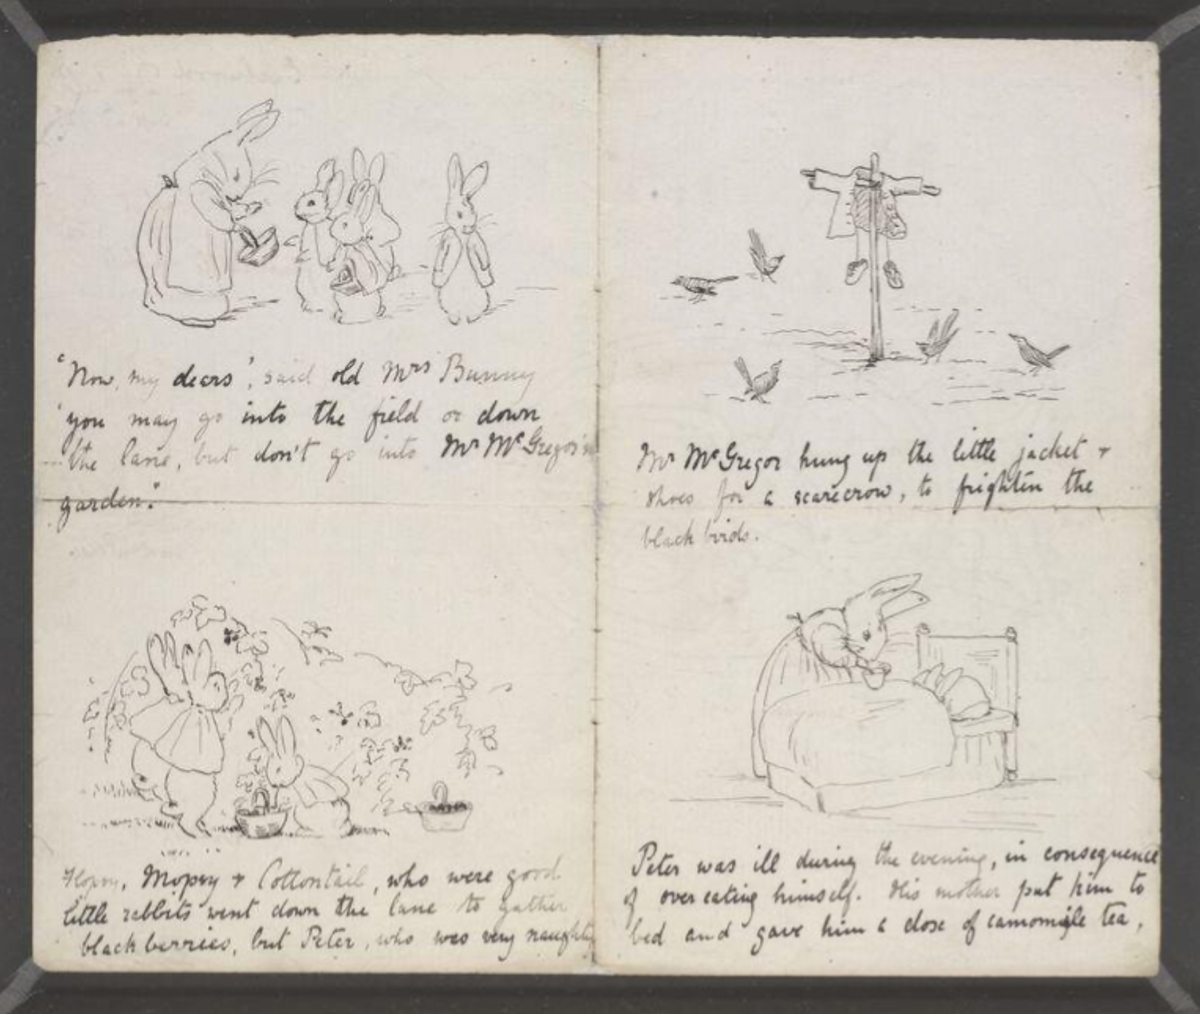 "Now, my dears', said old Mrs Bunny
'you may go into the field or down
the lane, but don't go into Mr McGregor's
garden."
Flopsy, Mopsy + Cottontail, who were good
little rabbits went down the lane to gather
black berries, but Peter, who was very naughty
Mr McGregor hung up the little jacket +
shoes for a scarecrow, to frighten the
black birds.
Peter was ill during the evening, in consequence
of over eating himself. His mother put him to
bed and gave him a dose of camomile tea,